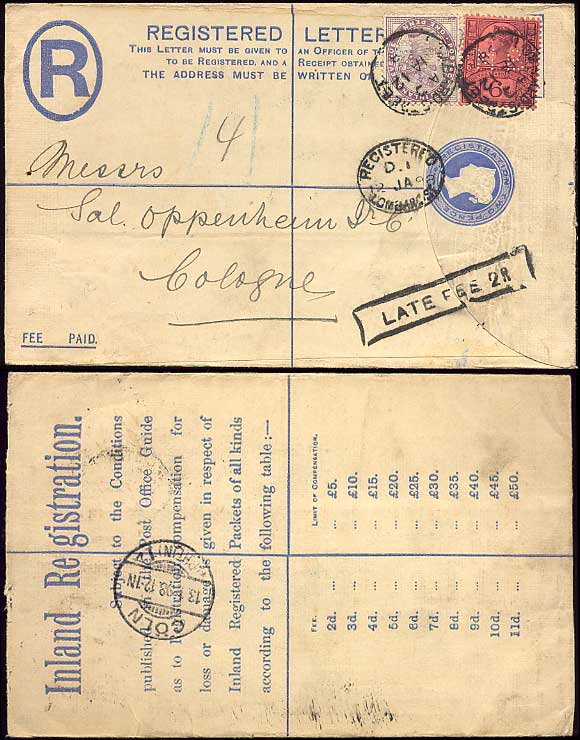 R
REGISTERED LETTER
THIS LETTER MUST BE GIVEN TO AN OFFICER OF
TO BE REGISTERED, AND A RECEIPT OBTAINED
THE ADDRESS MUST BE WRITTEN
4
REGISTERED
D.1
JA
LOMBARD ST
REGISTRATION TWO PENCE
Messrs
Sal. Oppenheim Jr & C.
Cologne
LATE FEE 2R
FEE PAID.
Inland Registration.
Subject to the Conditions
published in the Post Office Guide
as to Registration, compensation for
loss or damage is given in respect of
Inland Registered Packets of all kinds
according to the following table:—
FEE. LIMIT OF COMPENSATION.
2d. ... ... £5.
3d. ... ... £10.
4d. ... ... £15.
5d. ... ... £20.
6d. ... ... £25.
7d. ... ... £30.
8d. ... ... £35.
9d. ... ... £40.
10d. ... ... £45.
11d. ... ... £50.
CÖLN
12-1N